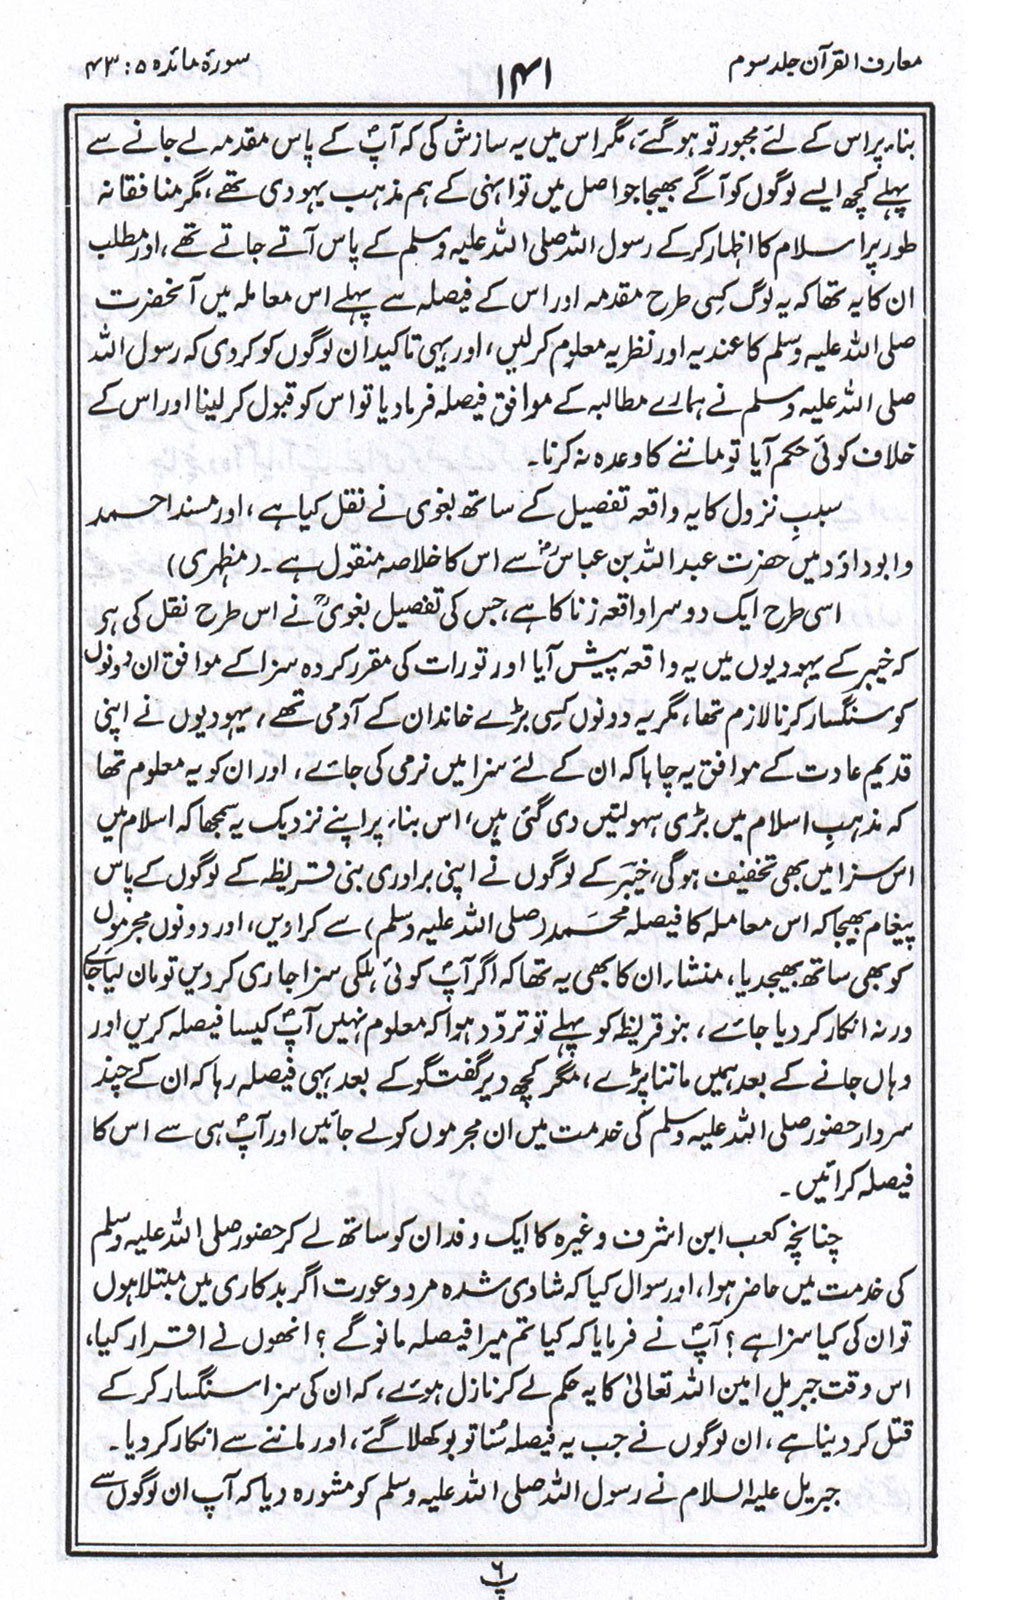 معارف القرآن جلد سوم
۱۴۱
سورۂ مائدہ ۵: ۴۳
بناء پر اس کے لئے مجبور تو ہو گئے، مگر اس میں یہ سازش کی کہ آپؐ کے پاس مقدمہ لے جانے سے
پہلے کچھ ایسے لوگوں کو آگے بھیجا جو اصل میں تو انہی کے ہم مذہب یہودی تھے، مگر منافقانہ
طور پر اسلام کا اظہار کرکے رسول اللہ صلی اللہ علیہ وسلم کے پاس آتے جاتے تھے، اور مطلب
ان کا یہ تھا کہ یہ لوگ کسی طرح مقدمہ اور اس کے فیصلہ سے پہلے اس معاملہ میں آنحضرت
صلی اللہ علیہ وسلم کا عندیہ اور نظریہ معلوم کرلیں، اور یہی تاکید ان لوگوں کو کردی کہ رسول اللہ
صلی اللہ علیہ وسلم نے ہمارے مطالبہ کے موافق فیصلہ فرمادیا تو اس کو قبول کرلینا اور اس کے
خلاف کوئی حکم آیا تو ماننے کا وعدہ نہ کرنا۔
سببِ نزول کا یہ واقعہ تفصیل کے ساتھ بغوی نے نقل کیا ہے، اور مسند احمد
و ابوداؤد میں حضرت عبداللہ بن عباسؓ سے اس کا خلاصہ منقول ہے۔ (مظہری)
اسی طرح ایک دوسرا واقعہ زنا کا ہے، جس کی تفصیل بغویؒ نے اس طرح نقل کی ہے
کہ خیبر کے یہودیوں میں یہ واقعہ پیش آیا اور تورات کی مقرر کردہ سزا کے موافق ان دونوں
کو سنگسار کرنا لازم تھا، مگر یہ دونوں کسی بڑے خاندان کے آدمی تھے، یہودیوں نے اپنی
قدیم عادت کے موافق یہ چاہا کہ ان کے لئے سزا میں نرمی کی جائے، اور ان کو یہ معلوم تھا
کہ مذہبِ اسلام میں بڑی سہولتیں دی گئی ہیں، اس بناء پر اپنے نزدیک یہ سمجھا کہ اسلام میں
اس سزا میں بھی تخفیف ہوگی، خیبر کے لوگوں نے اپنی برادری بنی قریظہ کے لوگوں کے پاس
پیغام بھیجا کہ اس معاملہ کا فیصلہ محمد (صلی اللہ علیہ وسلم) سے کرا دیں، اور دونوں مجرموں
کو بھی ساتھ بھیجدیا، منشاء ان کا بھی یہ تھا کہ اگر آپؐ کوئی ہلکی سزا جاری کردیں تو مان لیا جائے
ورنہ انکار کردیا جائے، بنو قریظہ کو پہلے تو تردّد ہوا کہ معلوم نہیں آپؐ کیسا فیصلہ کریں اور
وہاں جانے کے بعد ہمیں ماننا پڑے، مگر کچھ دیر گفتگو کے بعد یہی فیصلہ رہا کہ ان کے چند
سردار حضور صلی اللہ علیہ وسلم کی خدمت میں ان مجرموں کو لے جائیں اور آپؐ ہی سے اس کا
فیصلہ کرائیں۔
چنانچہ کعب ابن اشرف وغیرہ کا ایک وفد ان کو ساتھ لے کر حضور صلی اللہ علیہ وسلم
کی خدمت میں حاضر ہوا، اور سوال کیا کہ شادی شدہ مرد و عورت اگر بدکاری میں مبتلا ہوں
تو ان کی کیا سزا ہے؟ آپؐ نے فرمایا کہ کیا تم میرا فیصلہ مانو گے؟ انھوں نے اقرار کیا،
اس وقت جبریل امین اللہ تعالیٰ کا یہ حکم لے کر نازل ہوئے، کہ ان کی سزا سنگسار کرکے
قتل کر دینا ہے، ان لوگوں نے جب یہ فیصلہ سُنا تو بوکھلا گئے، اور ماننے سے انکار کردیا۔
جبریل علیہ السلام نے رسول اللہ صلی اللہ علیہ وسلم کو مشورہ دیا کہ آپ ان لوگوں سے
پ ۶